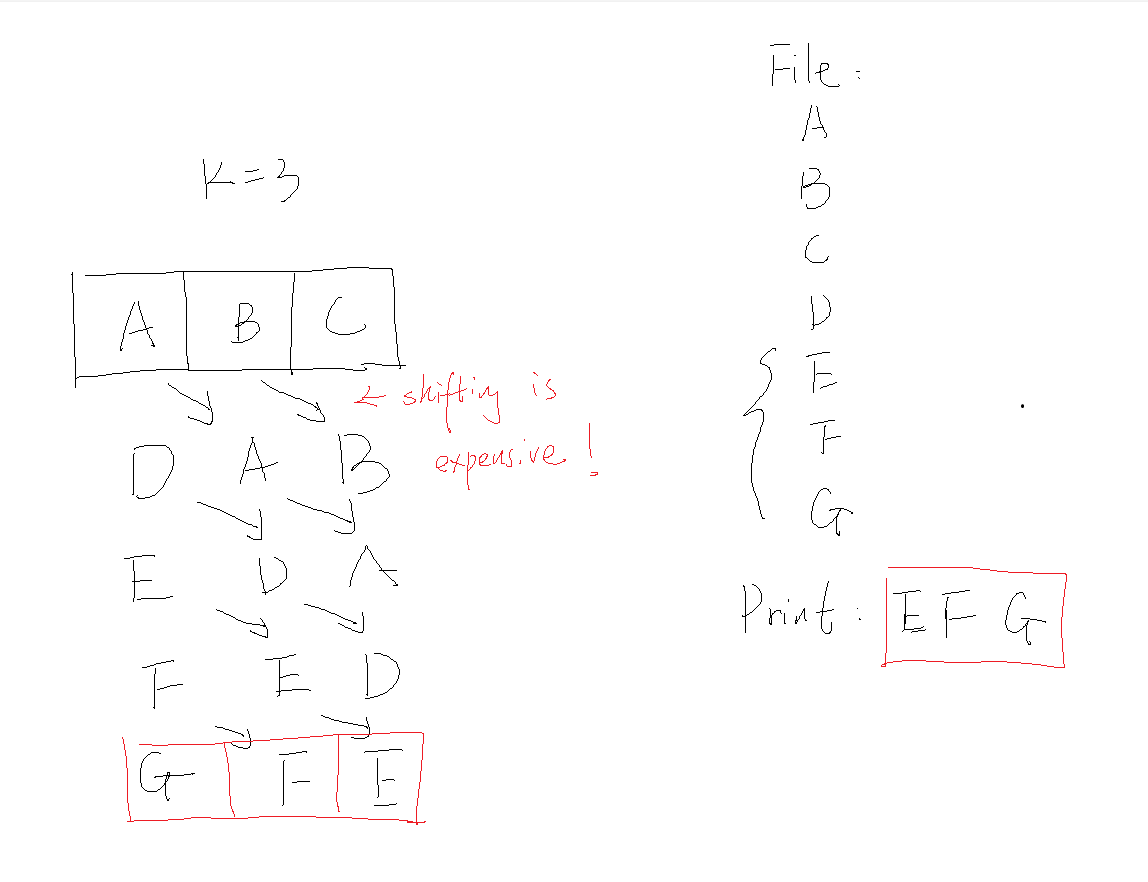 K=3
A B C
← shifting is
expensive!
D A B
E D A
F E D
G F E
File:
A
B
C
D
E
F
G
Print: E F G